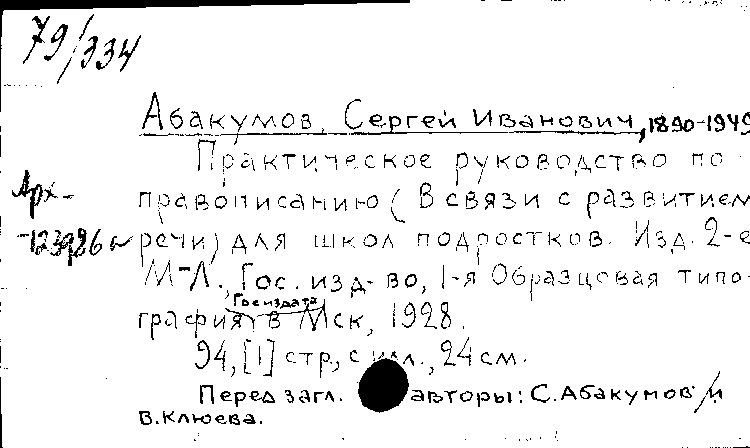 79/334
Абакумов, Сергей Иванович, 1890-1949
Практическое руководство по
Арх-
правописанию (В связи с развитием
-123986 м
речи) для школ подростков. Изд. 2-е
М-Л., Гос. изд-во, 1-я Образцовая типо-
Госиздата
графия в Мск, 1928.
94, [1] стр, с илл., 24 см.
Перед загл. авторы: С. Абакумов и
В. Клюева.